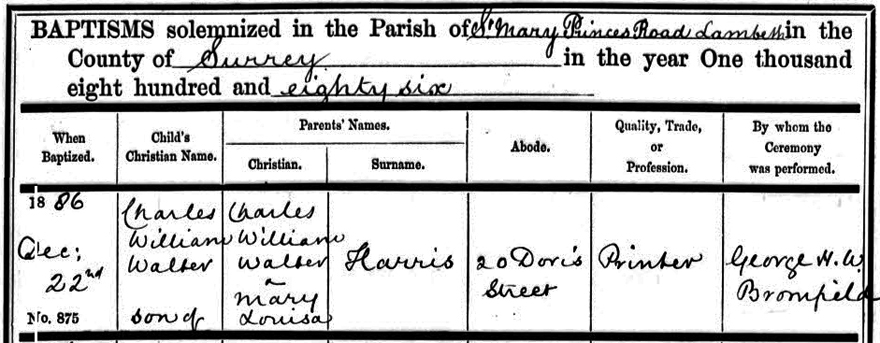 BAPTISMS solemnized in the Parish of St Mary Princes Road Lambeth in the
County of Surrey in the year One thousand
eight hundred and eighty six
When Baptized.
Child's Christian Name.
Parents' Names.
Christian.
Surname.
Abode.
Quality, Trade, or Profession.
By whom the Ceremony was performed.
1886
Dec:
22nd
No. 875
Charles
William
Walter
son of
Charles
William
Walter
~
Mary
Louisa
Harris
20 Doris
Street
Printer
George H. W.
Bromfield